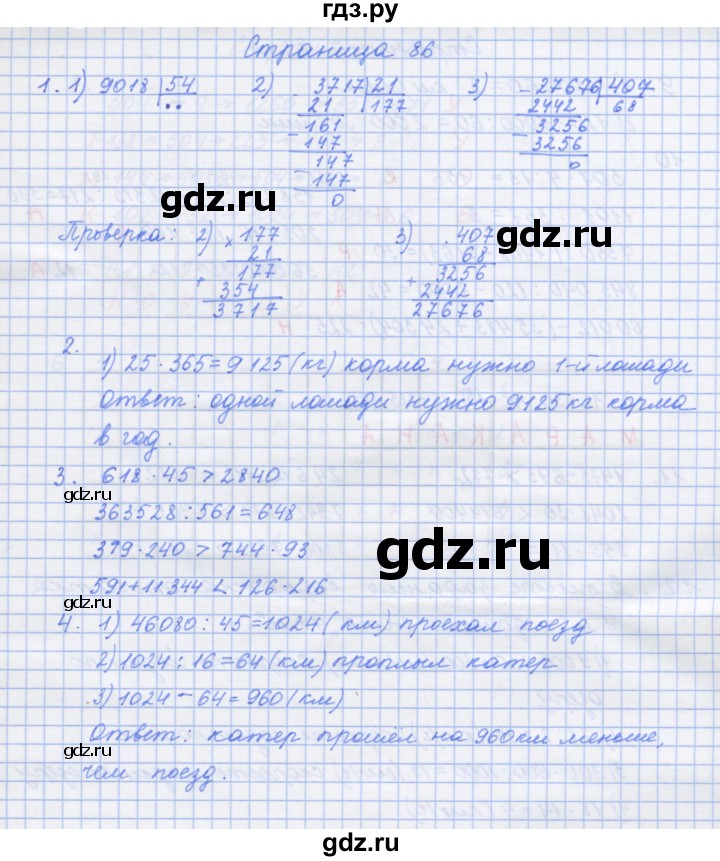 гдз.ру
Страница 86
1. 1) 9018 54 2) 3717 21 3) 27676 407
•• 21 177 2442 68
161 3256
147 3256
147 0
147
0
gdz.ru
gdz.ru
Проверка: 2) × 177 3) 407
21 68
177 3256
+ 354 + 2442
3717 27676
2.
1) 25 · 365 = 9125 (кг) корма нужно 1-й лошади
Ответ: одной лошади нужно 9125 кг корма
в год.
3. 618 · 45 > 2840
gdz.ru
363528 : 561 = 648
379 · 240 > 744 · 93
gdz.ru
591 + 11344 < 126 · 216
4. 1) 46080 : 45 = 1024 (км) проехал поезд
2) 1024 : 16 = 64 (км) проплыл катер
3) 1024 - 64 = 960 (км)
Ответ: катер прошёл на 960 км меньше,
gdz.ru
чем поезд.
gdz.ru
gdz.ru